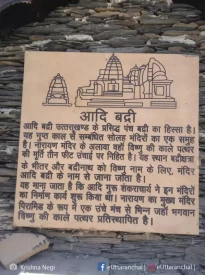 आदि बद्री
आदि बद्री उत्तराखण्ड के प्रसिद्ध पंच बद्री का हिस्सा है।
यह गुप्त काल से सम्बंधित सोलह मंदिरों का एक समूह
है। नारायण मंदिर के अलावा वहाँ विष्णु की काले पत्थर
की मूर्ति तीन फीट उंचाई पर निहित है। यह स्थान बद्रीक्षेत्र
के भीतर और बद्रीनाथ को विष्णु नाम के लिए, मंदिर
आदि बद्री के नाम से जाना जाता है।
यह माना जाता है कि आदि गुरू शंकराचार्य ने इन मंदिरों
का निर्माण कार्य शुरू किया था। नारायण का मुख्य मंदिर
पिरामिड के रूप में एक उंचे मंच से भिन्न जहाँ भगवान
विष्णु की काले पत्थर प्रतिस्थापित है।
Krishna Negi
eUttaranchal
eUttaranchal